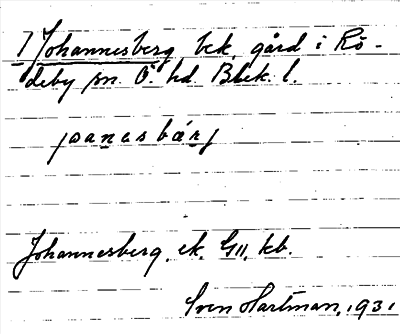 1/ Johannesberg bek. gård i Rö-
deby sn. Ö. hd Blek. l.
joanesbærj
Johannesberg, ek. GII, kb.
Sven Hartman, 1931